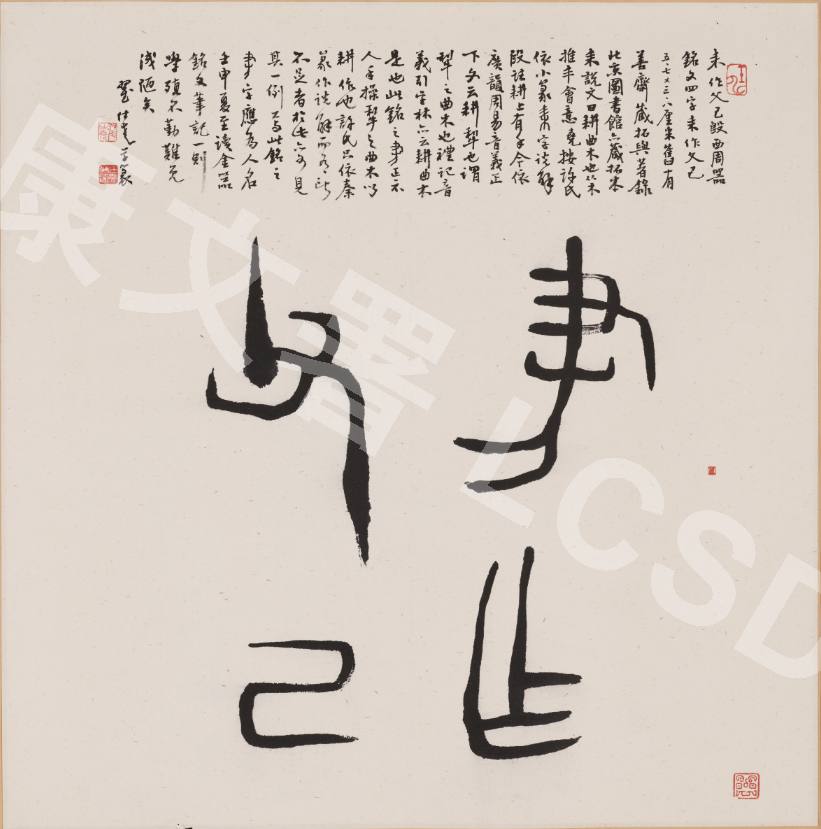 耒作父己
耒作父己𣪘西周器
銘文四字耒作父己
五·七×三·八厘米舊有
善齋藏拓與著錄
北京圖書館亦藏拓本
耒說文曰耕曲木也从木
推丰會意堯按許氏
依小篆耒字說解
段注耕上有手今依
廣韻周易音義正
下文云耕犂也謂
犂之曲木也禮記音
義引字林亦云耕曲木
是也此銘之耒正示
人手操犂之曲木以
耕作也許氏只依秦
篆作說解而有
不足者於此亦可見
其一例 此銘之
耒字應為人名
壬申夏至讀金器
銘文筆記一則
學殖不勤難免
淺陋矣
堯于篆
康文署 LCSD